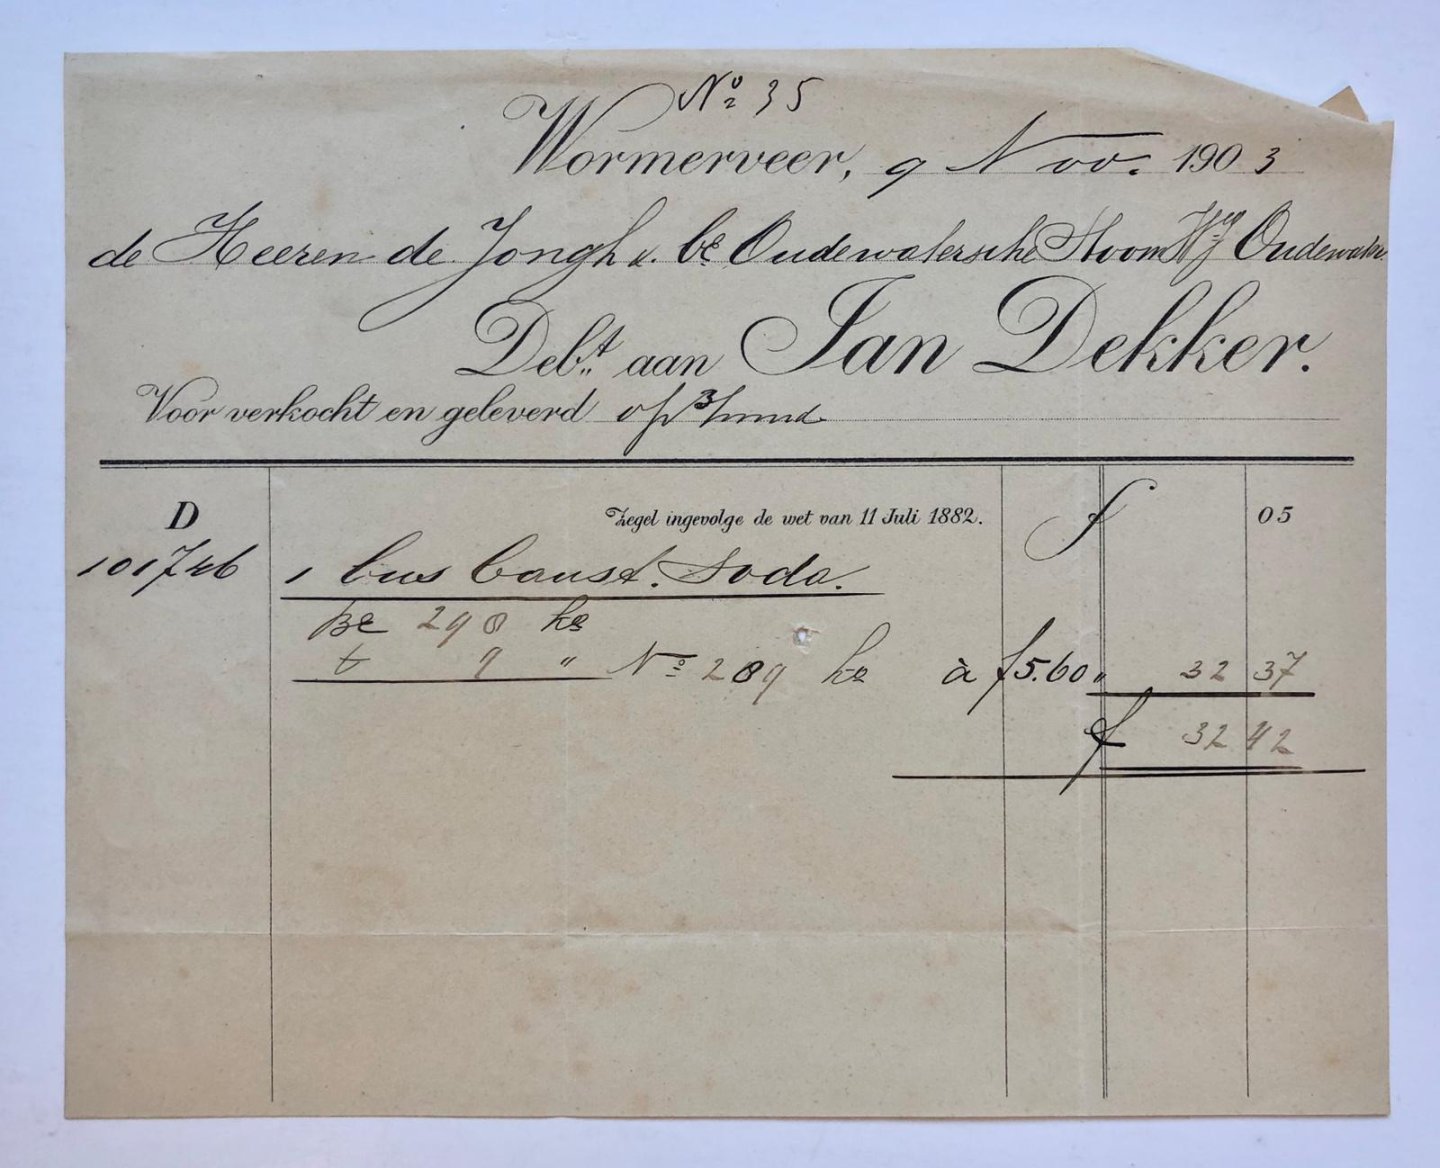 No 35
Wormerveer, 9 Nov. 1903
de Heeren de Jongh & Co Oudewatersche Stoom Oudewater
Debt. aan Jan Dekker.
Voor verkocht en geleverd op 3/mnd
D Zegel ingevolge de wet van 11 Juli 1882. f 05
101746 1 bus Caust. Soda.
Bo 290 ko
t 9 " No 289 ko à f 5.60 " 32 37
f 32 42